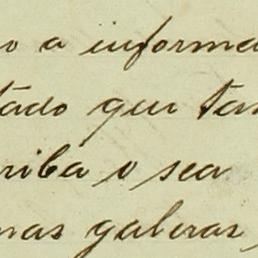 o a informa
tado que tan
rriba o sea
nas galeras,